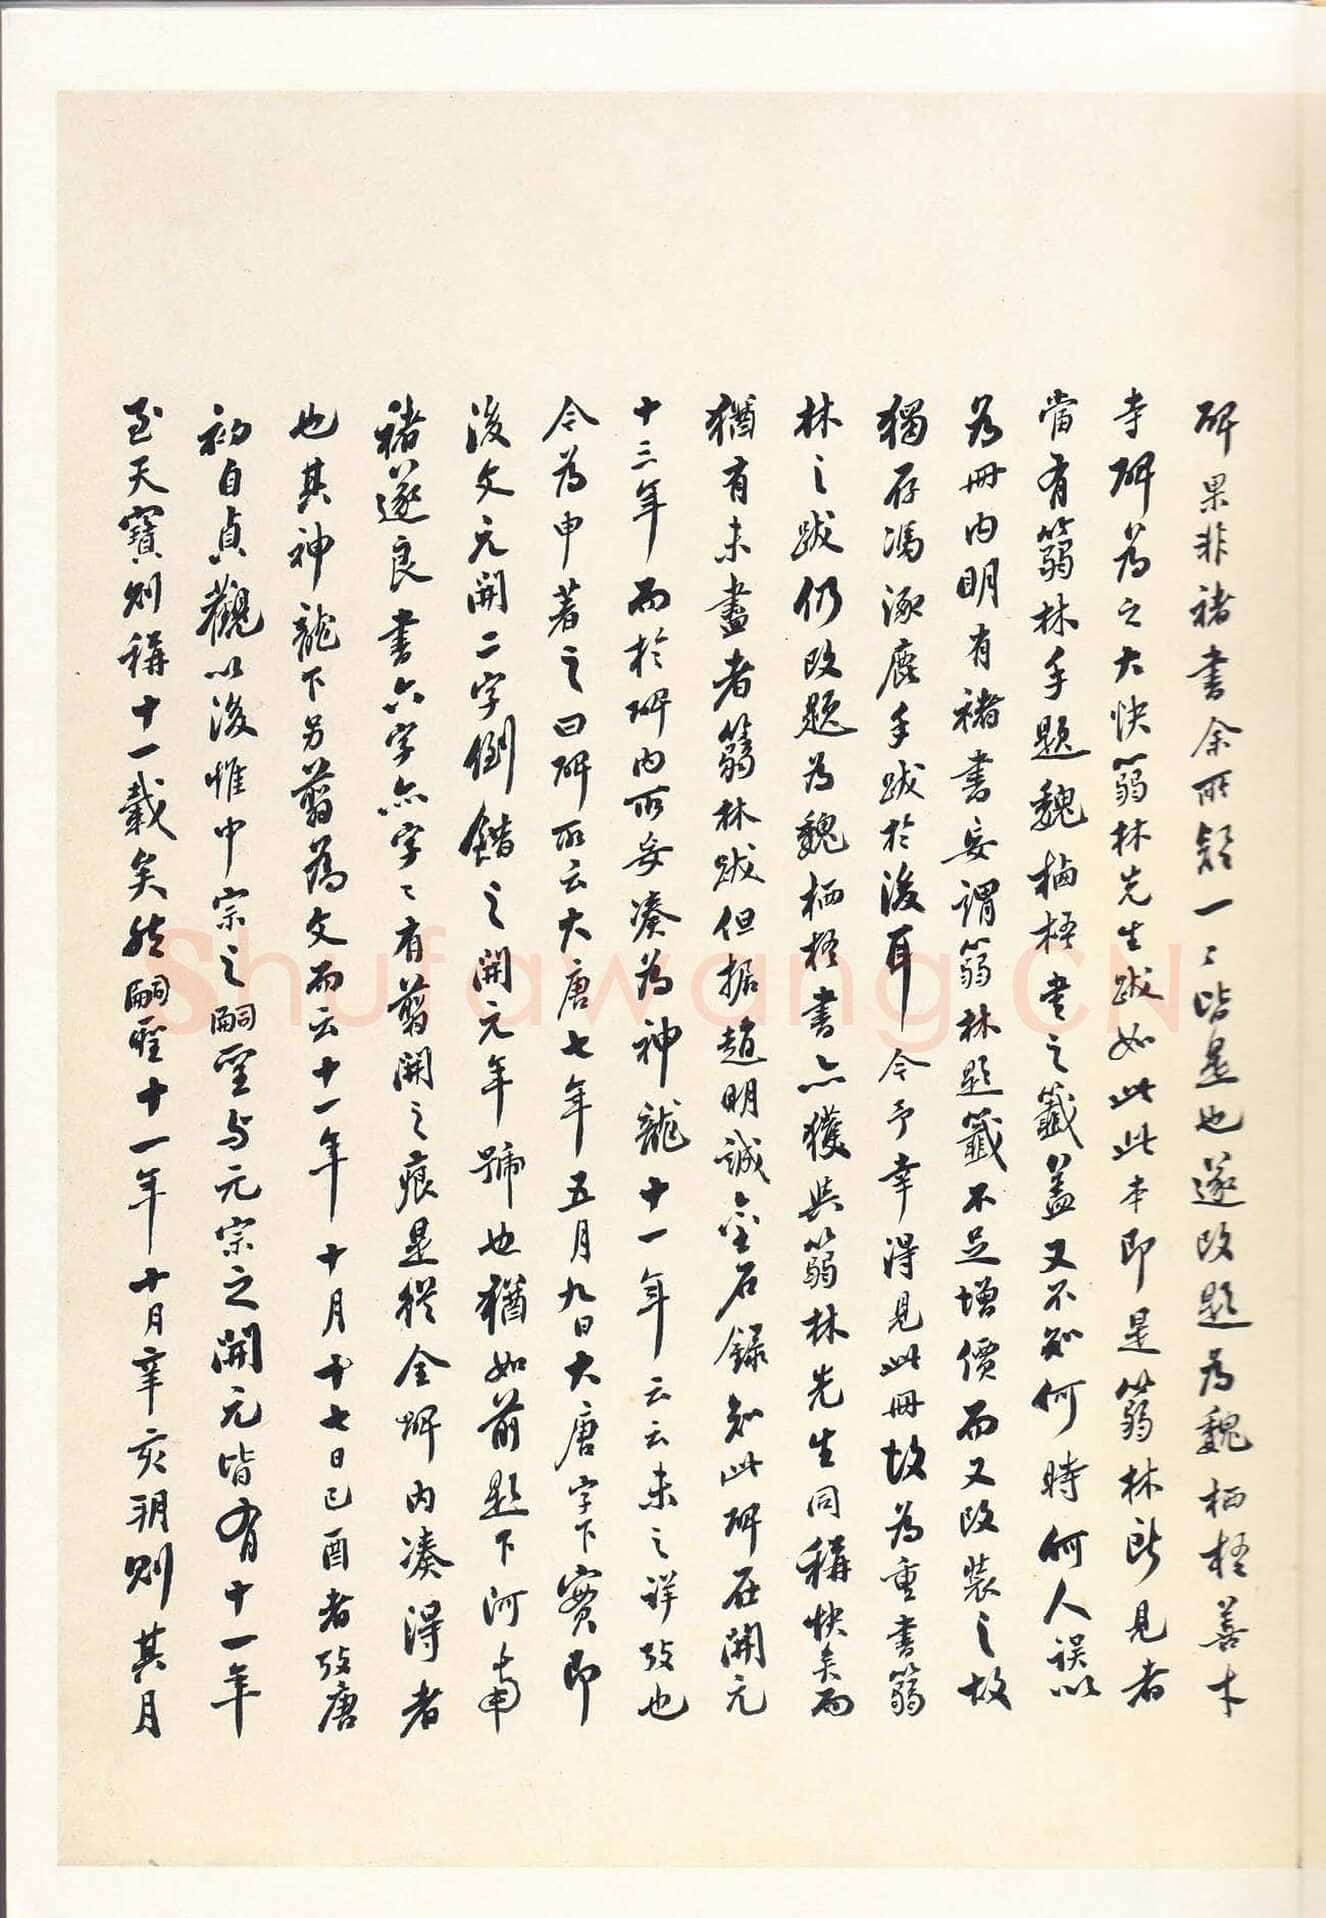 碑果非褚書余所疑一二皆是也遂改題為魏栖梧善才
寺碑為之大快蒻林先生跋如此此本即是蒻林所見者
當有蒻林手題魏栖梧書之籤蓋又不知何時何人誤以
為冊內明有褚書妄謂蒻林題籤不足增價而又改裝之故
獨存馮涿鹿手跋於後耳今予幸得見此冊故為重書蒻
林之跋仍改題為魏栖梧書亦獲與蒻林先生同稱快矣而
猶有未盡者蒻林跋但据趙明誠金石錄知此碑在開元
十三年而於碑內所妄湊為神龍十一年云云未之詳攷也
今為申著之曰碑所云大唐七年五月九日大唐字下實即
後文元開二字倒錯之開元年號也猶如前題下河南
褚遂良書六字亦字〻有翦開之痕是從全碑內湊得者
也其神龍下另翦為文而云十一年十月十七日己酉者攷唐
初自貞觀以後惟中宗之嗣聖与元宗之開元皆有十一年
至天寶則稱十一載矣然嗣聖十一年十月辛亥朔則其月
Shufawang.CN